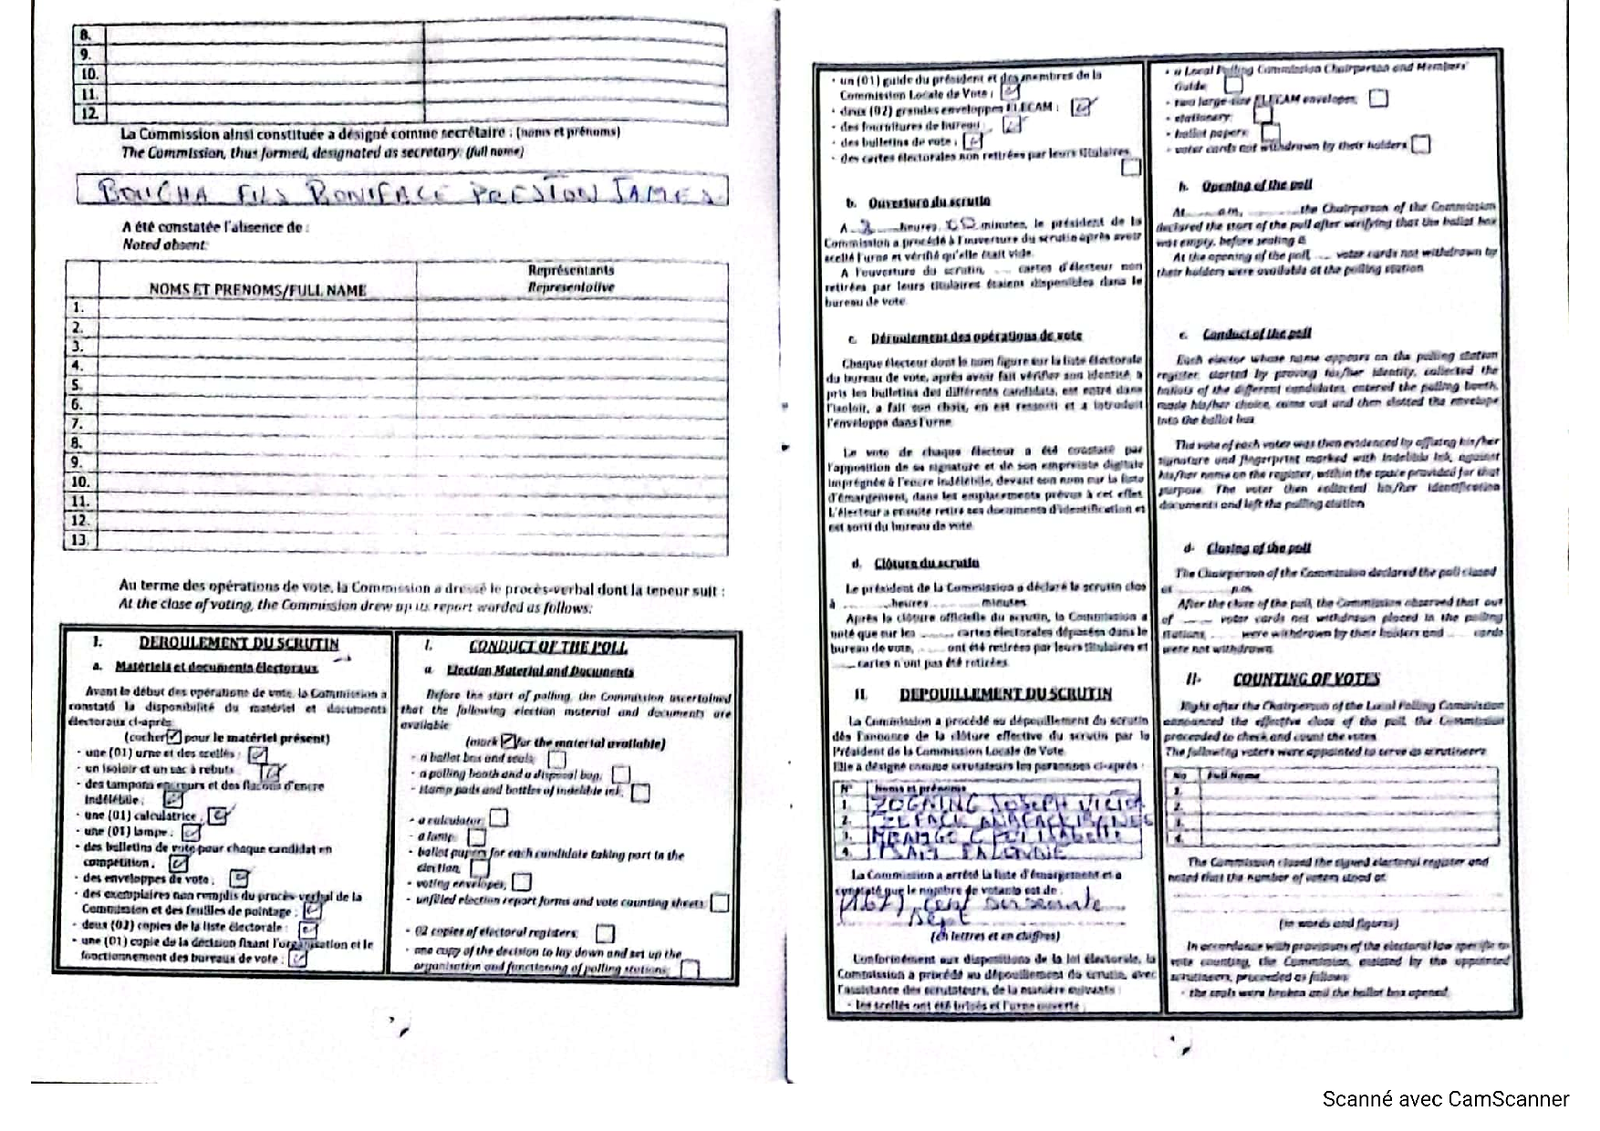 8.
9.
10.
11.
12.
La Commission ainsi constituée a désigné comme secrétaire : (noms et prénoms)
The Commission, thus formed, designated as secretary: (full name)
BOUCHA FILS BONIFACE PRESTON JAMES
A été constatée l'absence de :
Noted absent:
NOMS ET PRENOMS/FULL NAME
Représentants
Representative
1.
2.
3.
4.
5.
6.
7.
8.
9.
10.
11.
12.
13.
Au terme des opérations de vote, la Commission a dressé le procès-verbal dont la teneur suit :
At the close of voting, the Commission drew up its report worded as follows:
I. DEROULEMENT DU SCRUTIN
a. Matériels et documents électoraux
Avant le début des opérations de vote, la Commission a
constaté la disponibilité du matériel et documents
électoraux ci-après
(cocher ☑ pour le matériel présent)
- une (01) urne et des scellés :
- un isoloir et un sac à rebuts
- des tampons encreurs et des flacons d'encre
indélébile :
- une (01) calculatrice :
- une (01) lampe :
- des bulletins de vote pour chaque candidat en
compétition :
- des enveloppes de vote :
- des exemplaires non remplis du procès-verbal de la
Commission et des feuilles de pointage :
- deux (02) copies de la liste électorale :
- une (01) copie de la décision fixant l'organisation et le
fonctionnement des bureaux de vote :
I. CONDUCT OF THE POLL
a Election Material and Documents
Before the start of polling, the Commission ascertained
that the following election material and documents are
available
(mark ☑ for the material available)
- a ballot box and seals
- a polling booth and a disposal bag,
- stamp pads and bottles of indelible ink,
- a calculator
- a lamp
- ballot papers for each candidate taking part in the
election,
- voting envelopes,
- unfilled election report forms and vote counting sheets
- 02 copies of electoral registers,
- one copy of the decision to lay down and set up the
organisation and functioning of polling stations,
- un (01) guide du président et des membres de la
Commission Locale de Vote :
- deux (02) grandes enveloppes ELECAM :
- des fournitures de bureau :
- des bulletins de vote :
- des cartes électorales non retirées par leurs titulaires
b. Ouverture du scrutin
A heures, minutes, le président de la
Commission a procédé à l'ouverture du scrutin après avoir
scellé l'urne et vérifié qu'elle était vide.
A l'ouverture du scrutin, .... cartes d'électeur non
retirées par leurs titulaires étaient disponibles dans le
bureau de vote.
c. Déroulement des opérations de vote
Chaque électeur dont le nom figure sur la liste électorale
du bureau de vote, après avoir fait vérifier son identité, a
pris les bulletins des différents candidats, est entré dans
l'isoloir, a fait son choix, en est ressorti et a introduit
l'enveloppe dans l'urne.
Le vote de chaque électeur a été constaté par
l'apposition de sa signature et de son empreinte digitale
imprégnée à l'encre indélébile, devant son nom sur la liste
d'émargement, dans les emplacements prévus à cet effet.
L'électeur a ensuite retiré ses documents d'identification et
est sorti du bureau de vote.
d. Clôture du scrutin
Le président de la Commission a déclaré le scrutin clos
à ........heures ........ minutes.
Après la clôture officielle du scrutin, la Commission a
noté que sur les ........ cartes électorales déposées dans le
bureau de vote, ....... ont été retirées par leurs titulaires et
...... cartes n'ont pas été retirées.
II. DEPOUILLEMENT DU SCRUTIN
La Commission a procédé au dépouillement du scrutin
dès l'annonce de la clôture effective du scrutin par le
Président de la Commission Locale de Vote.
Elle a désigné comme scrutateurs les personnes ci-après :
N° Noms et prénoms
1. ZOGNING JOSEPH
2.
3.
4.
La Commission a arrêté la liste d'émargement et a
constaté que le nombre de votants est de :
(167) Cent soixante
Sept
(en lettres et en chiffres)
Conformément aux dispositions de la loi électorale, la
Commission a procédé au dépouillement du scrutin, avec
l'assistance des scrutateurs, de la manière suivante :
- les scellés ont été brisés et l'urne ouverte ;
- a Local Polling Commission Chairperson and Members'
Guide
- two large-size ELECAM envelopes,
- stationary:
- ballot papers:
- voter cards not withdrawn by their holders
b. Opening of the poll
At........am, .............the Chairperson of the Commission
declared the start of the poll after verifying that the ballot box
was empty, before sealing it.
At the opening of the poll, .... voter cards not withdrawn by
their holders were available at the polling station.
c. Conduct of the poll
Each elector whose name appears on the polling station
register, started by proving his/her identity, collected the
ballots of the different candidates, entered the polling booth,
made his/her choice, came out and then slotted the envelope
into the ballot box
The vote of each voter was then evidenced by affixing his/her
signature and fingerprint marked with indelible ink, against
his/her name on the register, within the space provided for that
purpose. The voter then collected his/her identification
documents and left the polling station
d- Closing of the poll
The Chairperson of the Commission declared the poll closed
at ........ p.m.
After the close of the poll, the Commission observed that out
of ........ voter cards not withdrawn placed in the polling
stations, ..... were withdrawn by their holders and ..... cards
were not withdrawn.
II- COUNTING OF VOTES
Right after the Chairperson of the Local Polling Commission
announced the effective close of the poll, the Commission
proceeded to check and count the votes.
The following voters were appointed to serve as scrutineers
No Full Name
1.
2.
3.
4.
The Commission closed the signed electoral register and
noted that the number of voters stood at:
(in words and figures)
In accordance with provisions of the electoral law specific to
vote counting, the Commission, assisted by the appointed
scrutineers, proceeded as follows:
- the seals were broken and the ballot box opened,
Scanné avec CamScanner